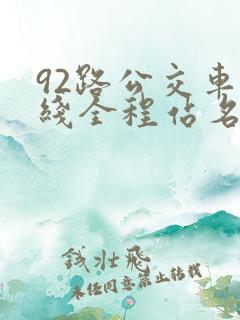 92路公交車
綫全程佔名
錢壯飛
未经同意禁止转载